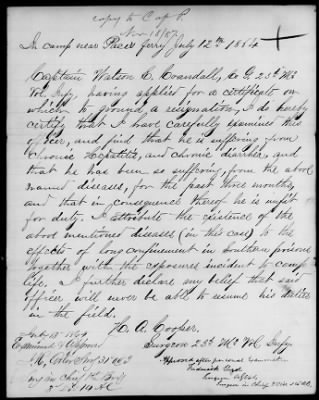 copy to Cap P.
Nov 18/87
In camp near Paces ferry July 12th 1864
Captain Watson C. Crandall, Co G. 23d Mo
Vol. Infy, having applied for a certificate on
which to ground a resignation, I do hereby
certify that I have carefully examined this
officer, and find that he is suffering from
Chronic Hepatitis, and chronic diarrhea, and
that he has been so suffering from the above
named diseases, for the past three months,
and that in consequence thereof he is unfit
for duty. I attribute the existence of the
above mentioned diseases (in this case) to the
effects of long confinement in southern prisons
together with the exposures incident to camp
life. I further declare my belief that said
officer will never be able to resume his duties
in the field.
H. A. Cooper,
Surgeon 23d Mo Vol Infy
July 13th 1864
Approved after personal examination
Surgeon in Chief 3 Div 14 A.C.